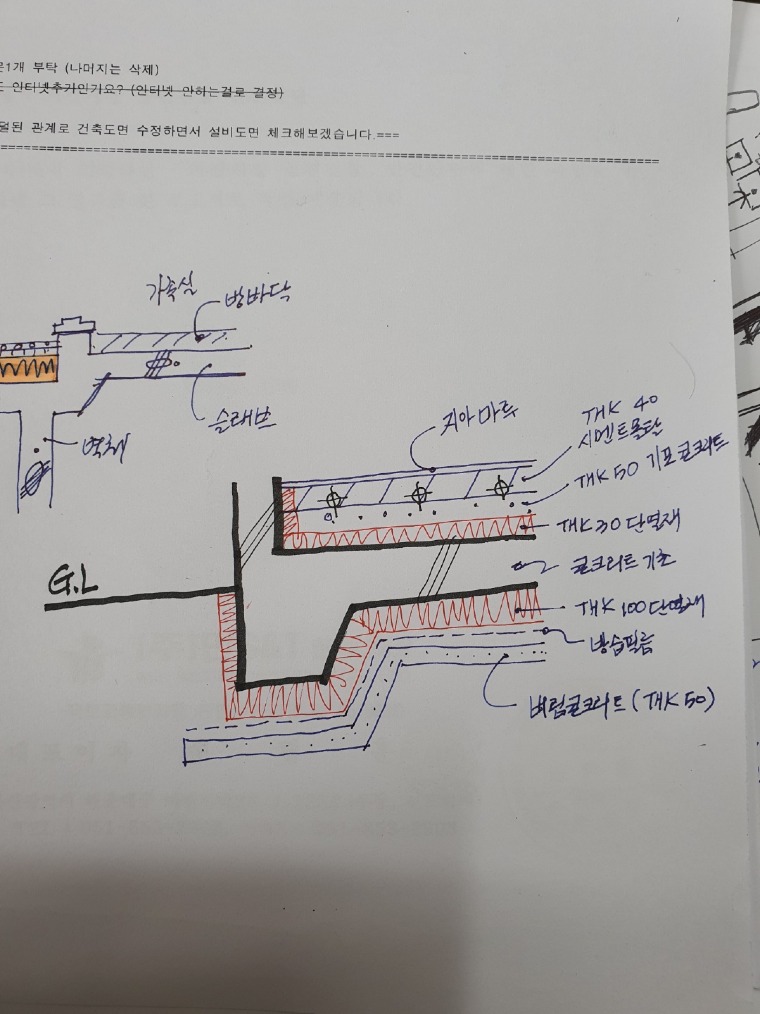 1개 부탁 (나머지는 삭제)
인터넷추가인가요? (인터넷 안하는걸로 결정)
덜된 관계로 건축도면 수정하면서 설비도면 체크해보겠습니다.===
가족실
방바닥
슬래브
벽체
지아마루
THK 40
시멘트몰탈
THK 50 기포콘크리트
THK 30 단열재
콘크리트 기초
G.L
THK 100 단열재
방습필름
버림콘크리트 (THK 50)